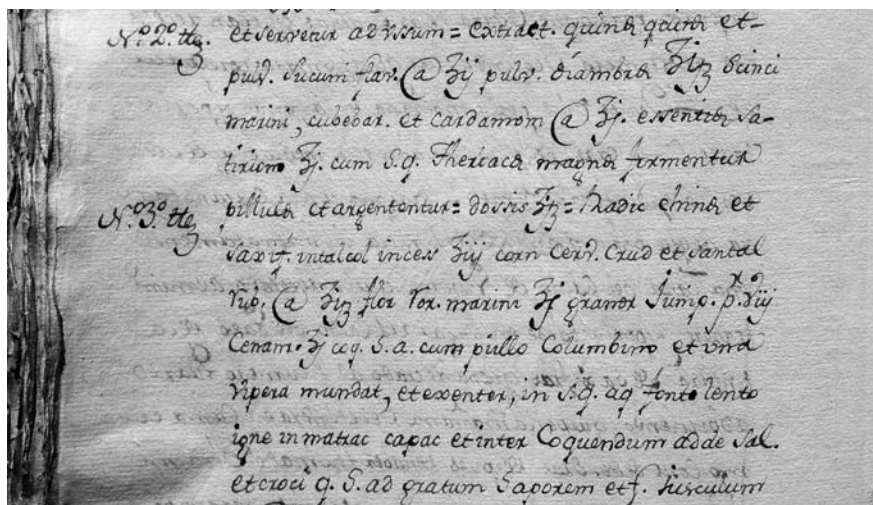 N.º 2.º et servetur ad vssum = Extract. quinæ quinæ et-
pulv. Sucuni flav. @ ʒij pulv. diambræ ʒiß Scinci
marini, cubebar. et Cardamom @ ʒj. essentiæ Sa-
tirion ʒj. cum S.q. Theriacæ magnæ formentur
N.º 3.º pillulæ et argententur = dossis ʒß = Radic chinæ et
Saxif. intalcol inces ʒiij corn Cerv. Crud et Santal
rub. @ ʒiß flor ror. marini ʒj granor Junip.
ʒj coq. S. a. cum pullo Columbino et vna
Vipera mundat, et exenter, in S.q. aq fonte lento
igne in matrac capac et inter Coquendum adde Sal.
et croci q. S. ad gratum Saporem et f. Jusculum